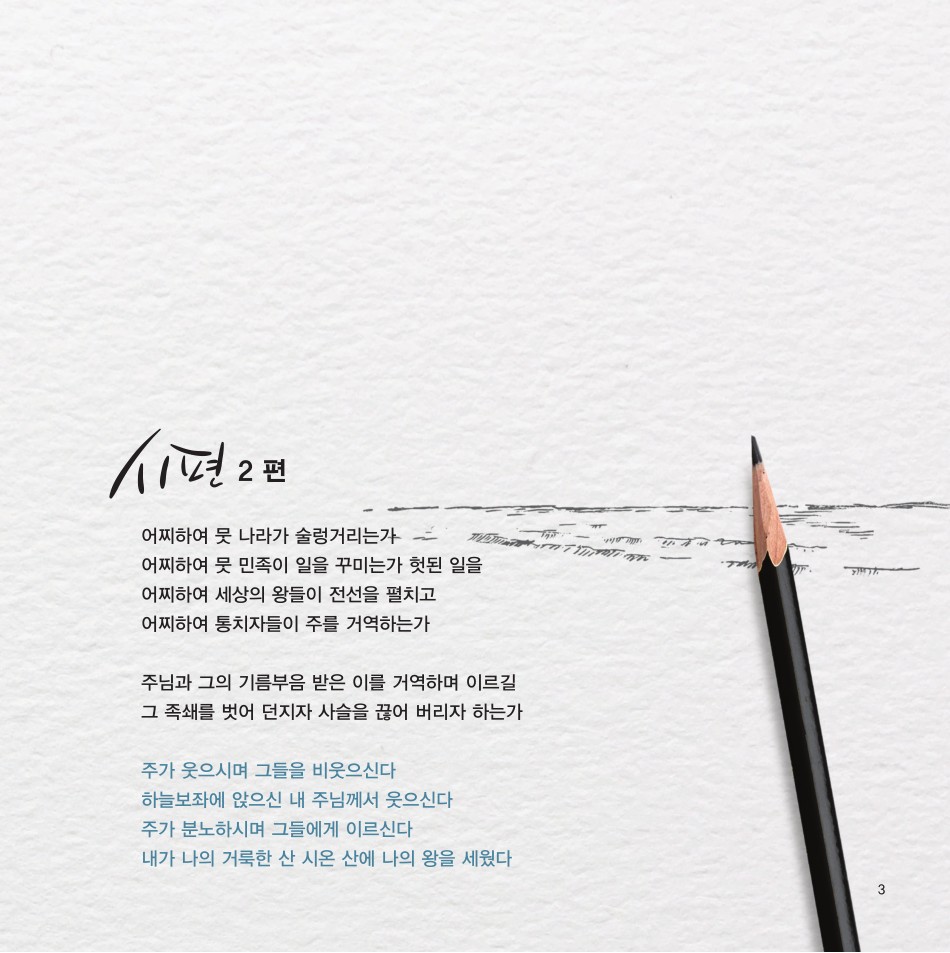 시편 2 편
어찌하여 뭇 나라가 술렁거리는가
어찌하여 뭇 민족이 일을 꾸미는가 헛된 일을
어찌하여 세상의 왕들이 전선을 펼치고
어찌하여 통치자들이 주를 거역하는가
주님과 그의 기름부음 받은 이를 거역하며 이르길
그 족쇄를 벗어 던지자 사슬을 끊어 버리자 하는가
주가 웃으시며 그들을 비웃으신다
하늘보좌에 앉으신 내 주님께서 웃으신다
주가 분노하시며 그들에게 이르신다
내가 나의 거룩한 산 시온 산에 나의 왕을 세웠다
3